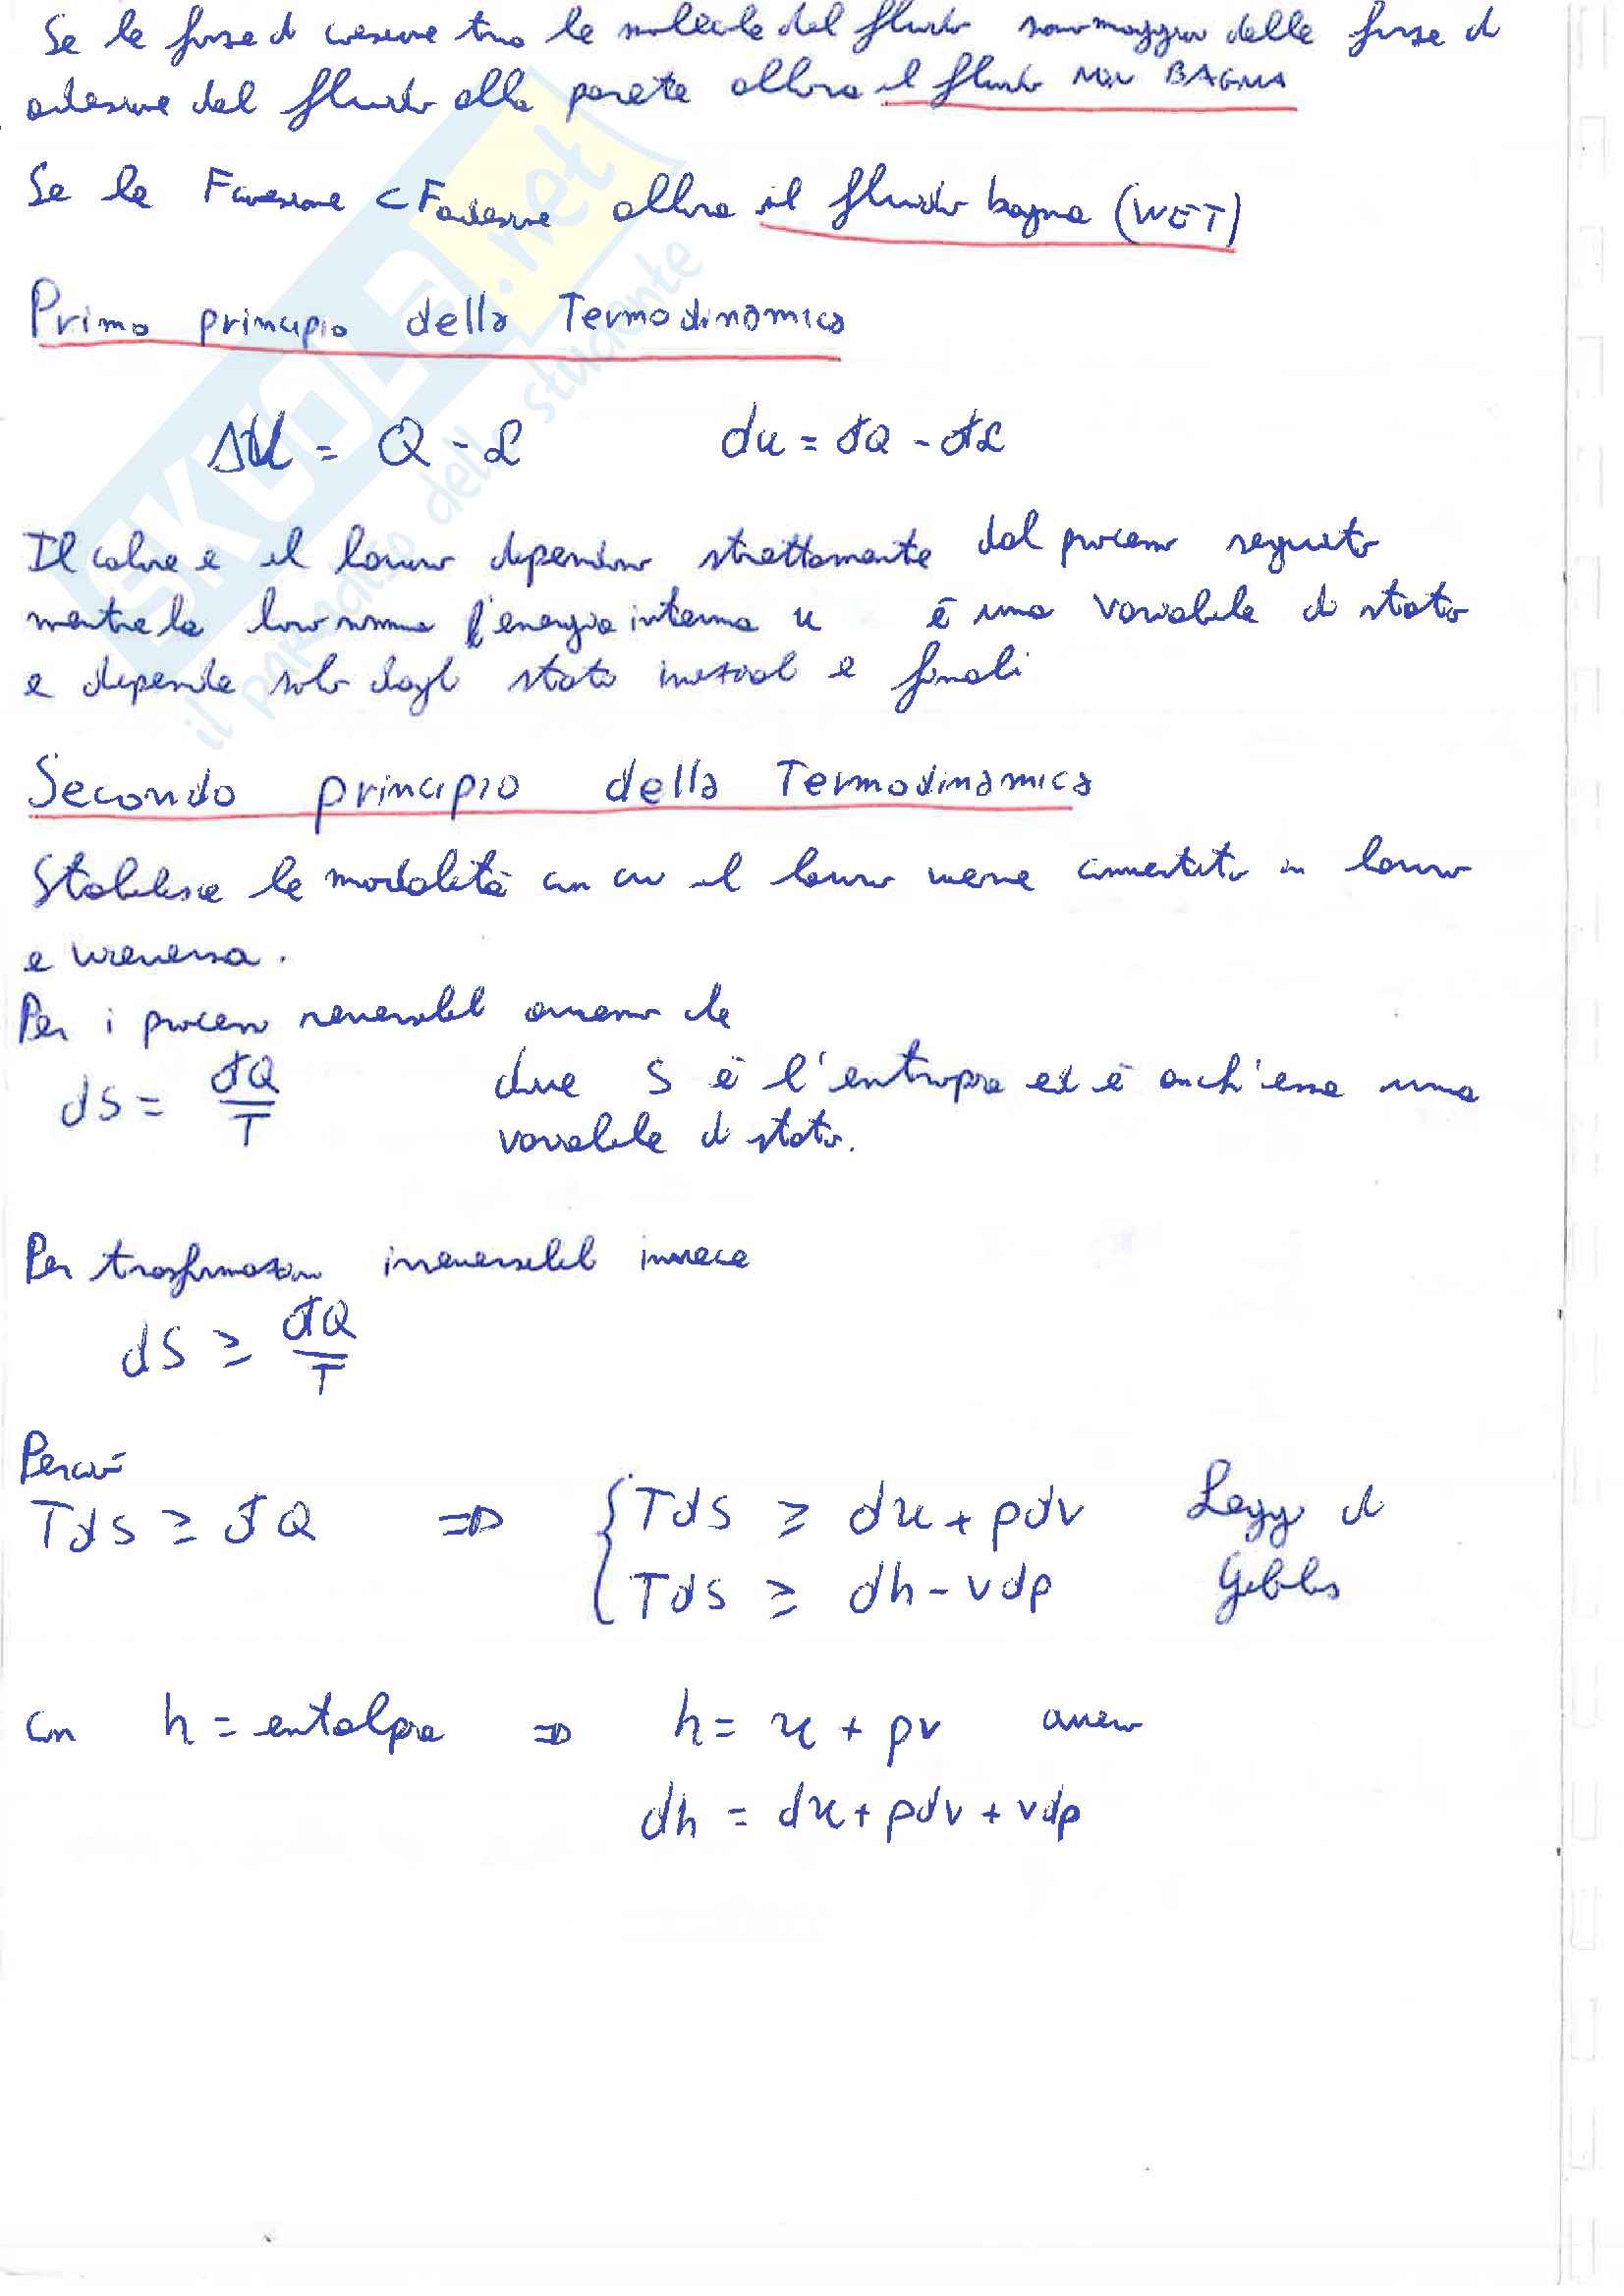 Se le forze di coesione tra le molecole del fluido sono maggiori delle forze di
adesione del fluido alla parete allora il fluido NON BAGNA
Se le Fcoesione < Fadesione allora il fluido bagna (WET)
Primo principio della Termodinamica
ΔU = Q - L du = δQ - δL
Il calore e il lavoro dipendono strettamente dal processo seguito
mentre la loro somma l'energia interna u è una variabile di stato
e dipende solo dagli stati iniziali e finali
Secondo principio della Termodinamica
Stabilisce le modalità con cui il lavoro viene convertito in lavoro
e viceversa.
Per i processi reversibili avremo che
dS = δQ/T dove S è l'entropia ed è anch'essa una
variabile di stato.
Per trasformazioni irreversibili invece
dS ≥ δQ/T
Perciò
TdS ≥ δQ ⇒ { TdS ≥ du + pdv Leggi di
TdS ≥ dh - vdp Gibbs
con h = entalpia ⇒ h = u + pv ovvero
dh = du + pdv + vdp
SKUOLA.net
il paradiso dello studente